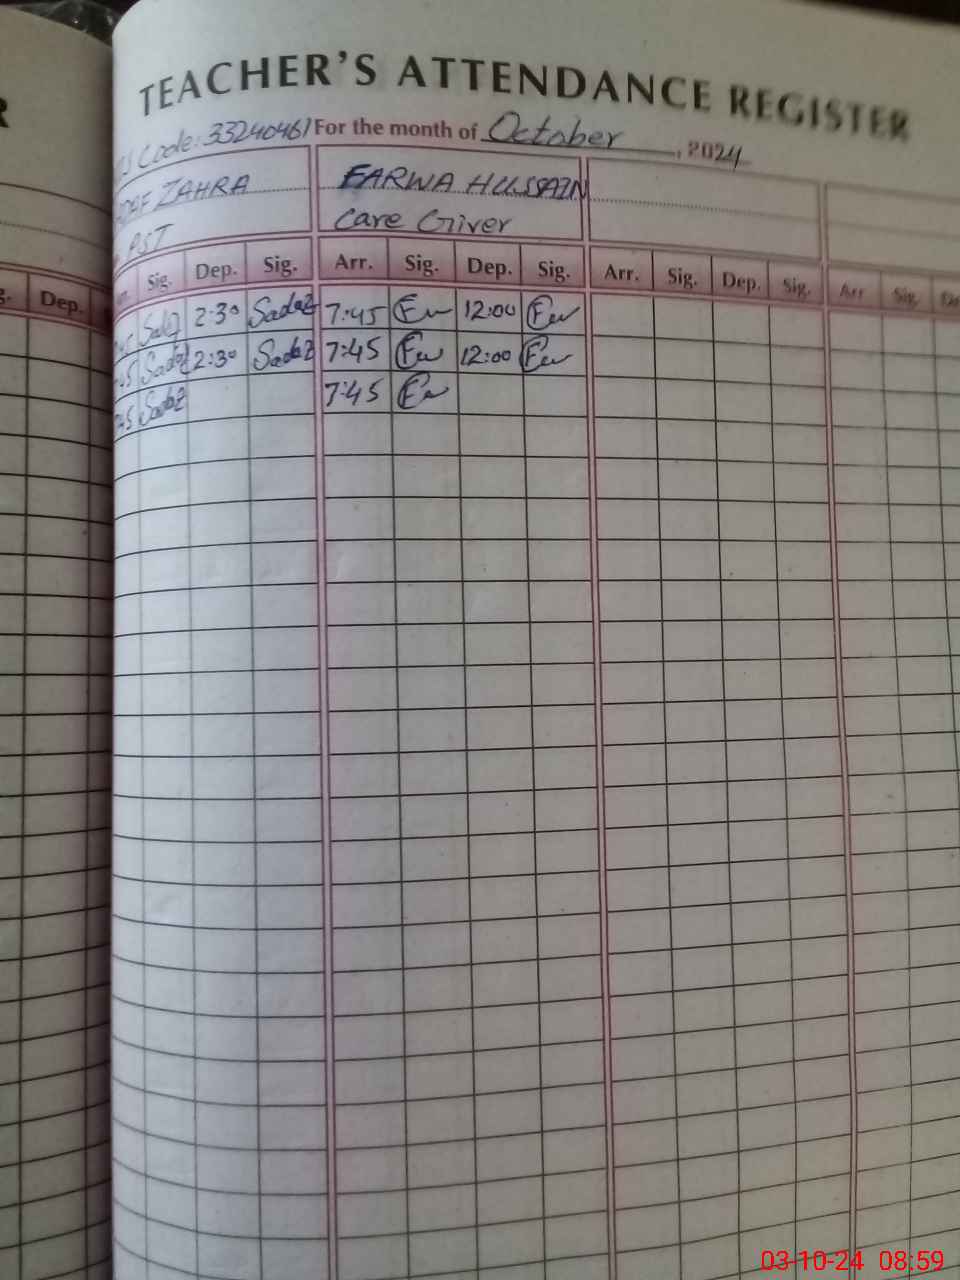 R
TEACHER'S ATTENDANCE REGISTER
Code: 33240461 For the month of October, 2024
ZAHRA FARWA HUSSAIN
PST Care Giver
Dep. Sig. Dep. Sig. Arr. Sig. Dep. Sig. Arr. Sig. Dep. Sig. Arr Sig.
2:30 Sadaf 7:45 12:00
2:30 Sadaf 7:45 12:00
Sadaf 7:45
03-10-24 08:59